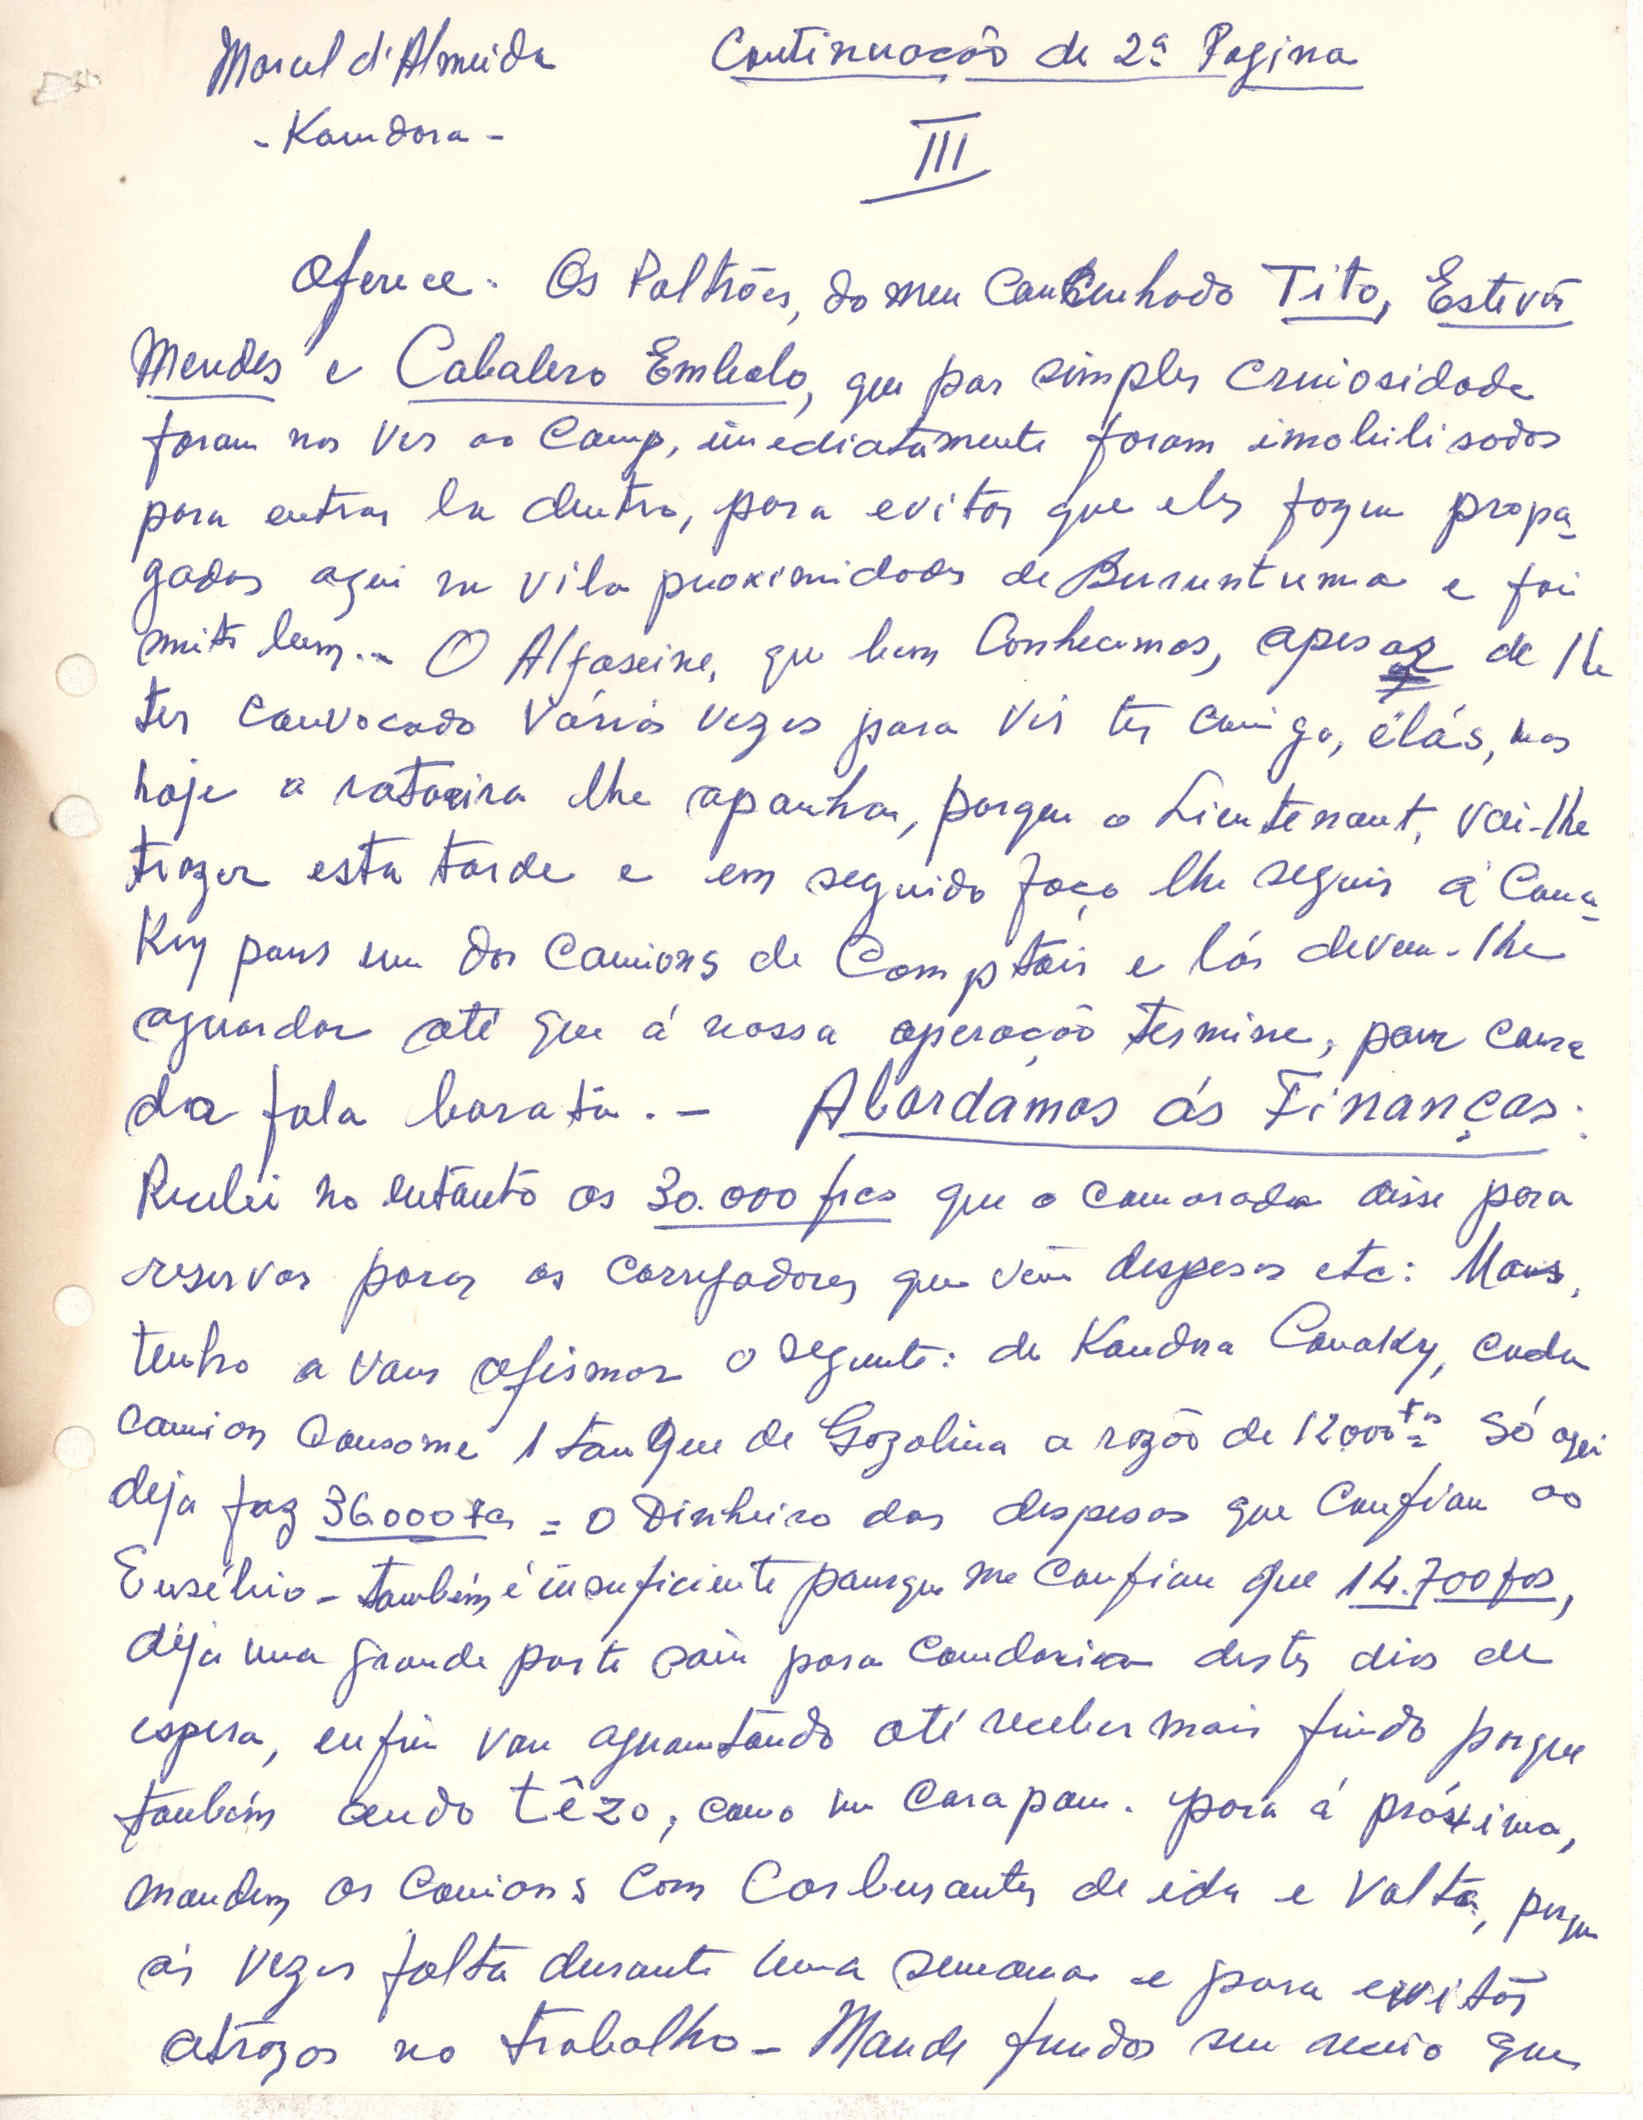 Marcel d'Almeida Continuacão de 2ª Pagina
- Kaundora -
III
Oferece. Os Paltrões, do meu Cambunhado Tito, Estevão
Mendes e Cabalero Embalo, que por simples cruiosidade
foram nos ver ao Camp, imediatamente foram imobilisados
para entrar la dentro, para evitar que eles fogem propa-
gadas aqui na vila proximidades de Buruntuma e foi
muito bem... O Alfaseine, que bem Conhecemos, apesar de lhe
ter convocado Vários vezes para vir ter comigo, élás, mas
hoje a ratoeira lhe apanhou, porque o Lieutenant, vai-lhe
trazer esta tarde e em seguida faço lhe seguir á Cona-
Kry para um dos Camions de Comptoir e lás devem-lhe
aguardar até que á nossa operação termine, por causa
da fala barata. - Abordamos ás Finanças:
Recebi no entanto os 30.000 frcs que o camarada disse para
reservar para os carregadores que vem despesas etc: Mais,
tenho a vous afirmar o seguinte: de Kandra Conakry, cada
camion consome 1 tanque de Gazolina a razão de 12.000 Só aqui
deja faz 36000 = O Dinheiro das despesas que Confiou ao
Eusébio - também é insuficiente parque me confiou que 14.700 fcs,
déja uma grande parte saiu para Comdoria destes dias de
espera, enfim vou aguantando até receber mais fundo porque
também ando têzo, como um carapau. para á próxima,
mandem os Camions Com Carburantes de ida e Volta, porque
ás vezes falta durante uma semana e para evitar
atrazos no trabalho - Mande fundos sem receio que